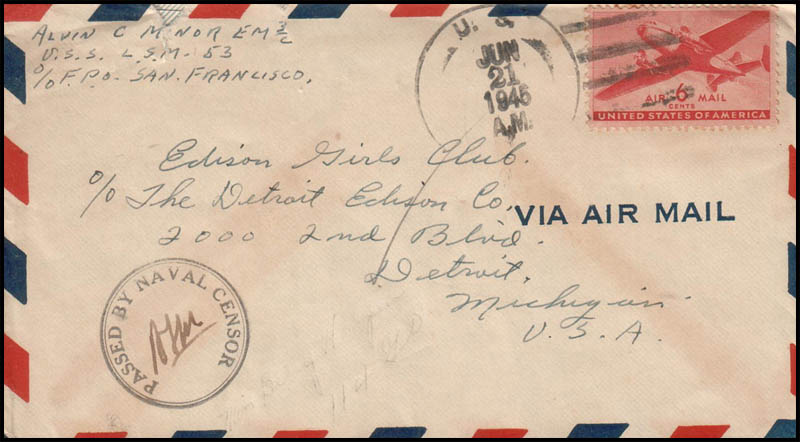 ALVIN C MINOR EM 3/C
U.S.S. L.S.M. 53
℅ F.P.O. SAN. FRANCISCO.
U. S
JUN
21
1945
A.M.
AIR 6 MAIL
CENTS
UNITED STATES OF AMERICA
Edison Girls Club.
℅ The Detroit Edison Co.
2000 2nd Blvd.
Detroit.
Michigan.
U. S. A.
VIA AIR MAIL
PASSED BY NAVAL CENSOR